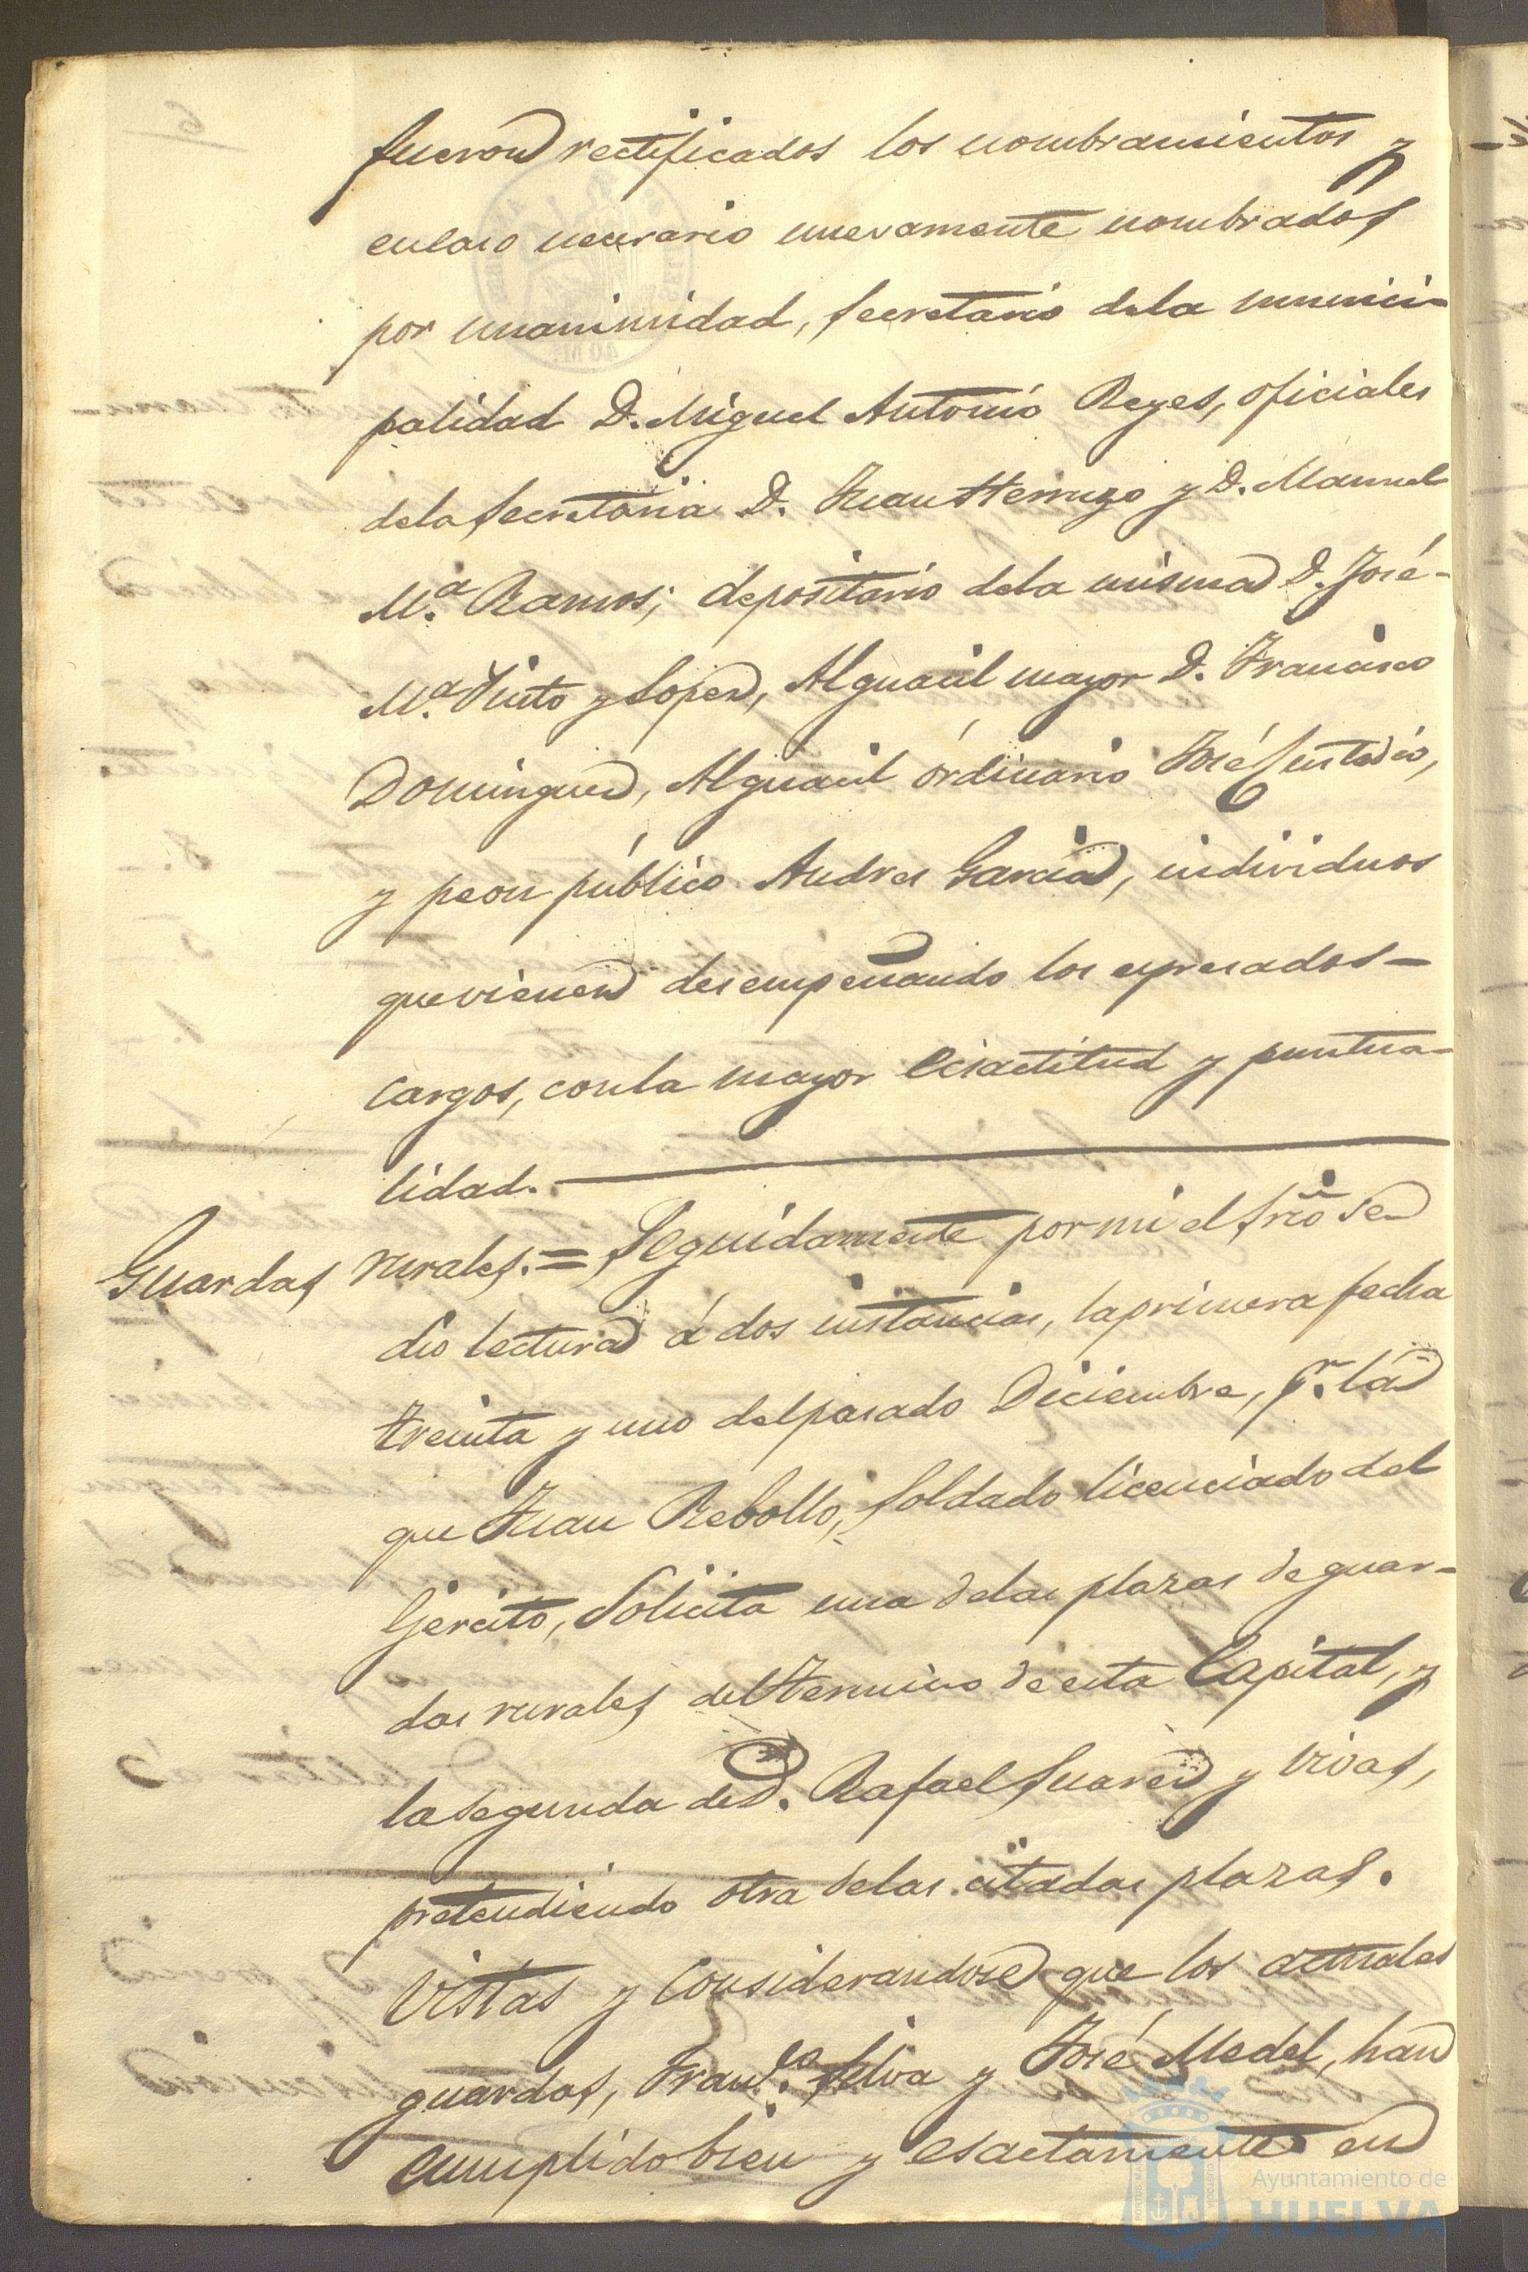 fueron rectificados los nombramientos y
en caso necesario nuevamente nombrados
por unanimidad, Secretario dela munici-
palidad D. Miguel Antonio Reyes, oficiales
dela Secretaria D. Juan Herruzo y D. Manuel
M.ª Ramos; depositario dela misma D. José
M.ª Pinto y Lopez, Alguacil mayor D. Francisco
Dominguez, Alguacil órdinario José Custodio,
y peon público Andres Garcia, individuos
que vienen desempeñando los espresados-
cargos, con la mayor ecsactitud y puntua-
lidad.
Guardas rurales.= Seguidamente por mi el Srio se
dio lectura á dos instancias, la primera fecha
treinta y uno del pasado Diciembre, pr. la
que Juan Rebollo, Soldado licenciado del
Ejercito, Solicita una delas plazas de guar-
das rurales del termino de esta Capital, y
la segunda de D. Rafael Suarez y Vivas,
pretendiendo otra delas citadas plazas.
Vistas y Considerandose que los actuales
guardas, Franco. Silva y José Medel, han
cumplido bien y esactamente en
Ayuntamiento de
HUELVA